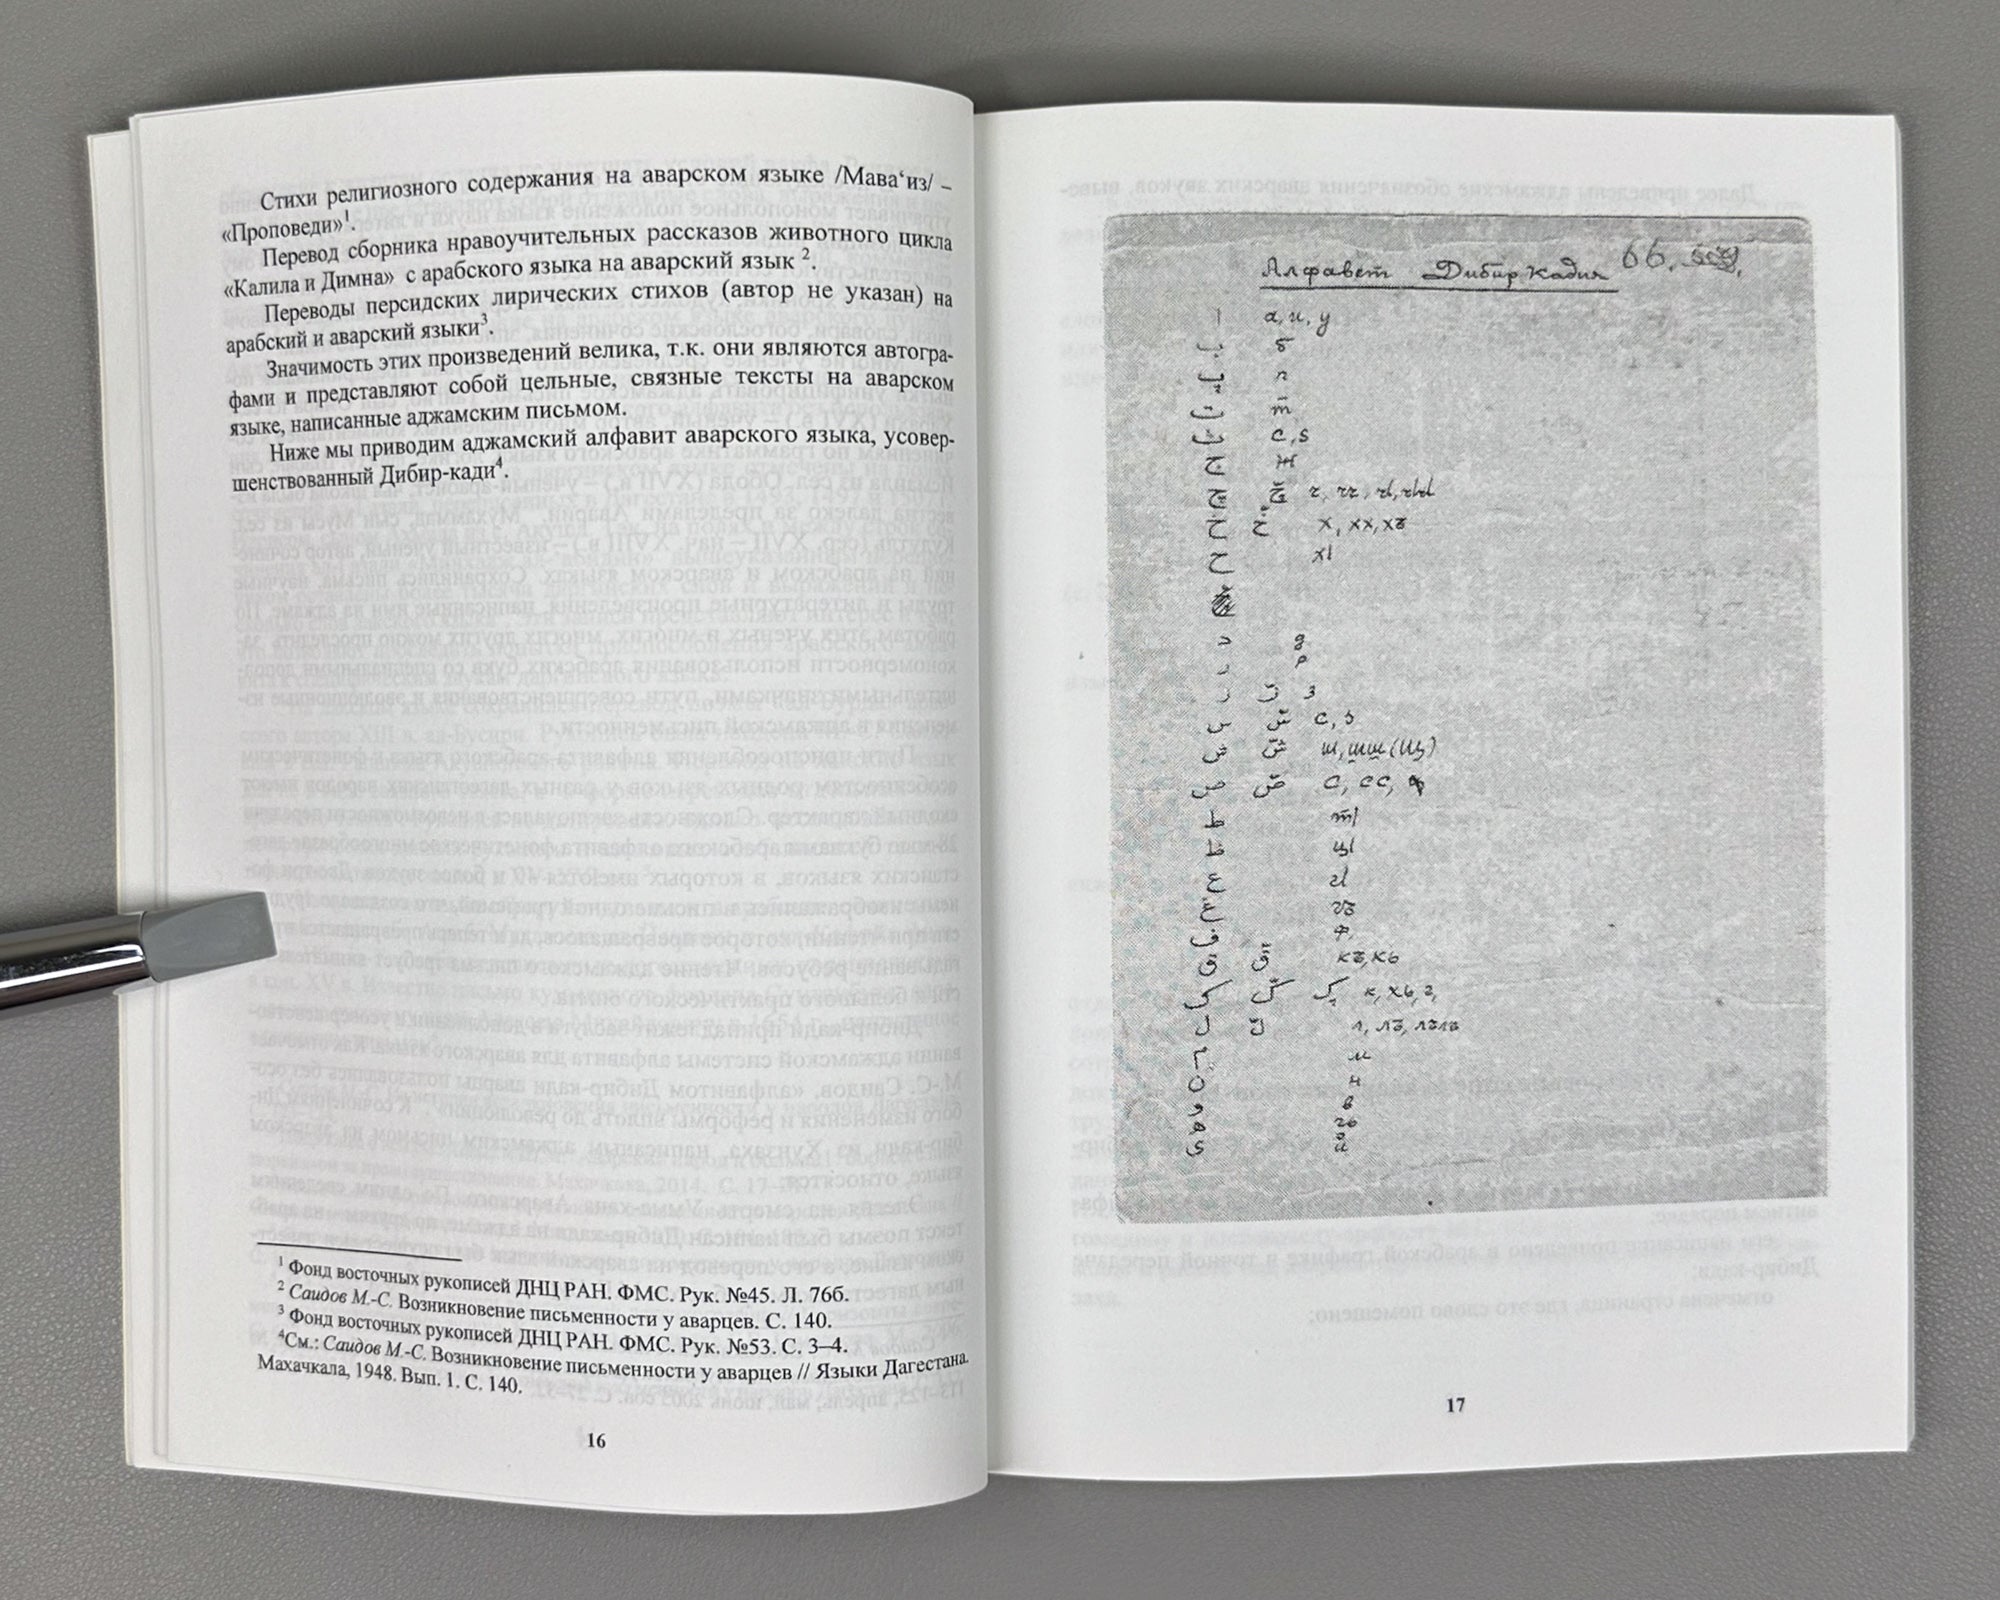 Стихи религиозного содержания на аварском языке /Мава‘из/ –
«Проповеди»¹.
Перевод сборника нравоучительных рассказов животного цикла
«Калила и Димна» с арабского языка на аварский язык ².
Переводы персидских лирических стихов (автор не указан) на
арабский и аварский языки³.
Значимость этих произведений велика, т.к. они являются автогра-
фами и представляют собой цельные, связные тексты на аварском
языке, написанные аджамским письмом.
Ниже мы приводим аджамский алфавит аварского языка, усовер-
шенствованный Дибир-кади⁴.
¹ Фонд восточных рукописей ДНЦ РАН. ФМС. Рук. №45. Л. 76б.
² Саидов М.-С. Возникновение письменности у аварцев. С. 140.
³ Фонд восточных рукописей ДНЦ РАН. ФМС. Рук. №53. С. 3–4.
⁴См.: Саидов М.-С. Возникновение письменности у аварцев // Языки Дагестана.
Махачкала, 1948. Вып. 1. С. 140.
16
Алфавит Дибир Кадия 66.
ا а, и, у
ب б
پ п
ت т
ث с, s
ج ж
چ ч, чч, чI, чIчI
خ х, хх, хъ
ح хI
د д
ر р
ز з
س с, s
ش ш, щщ (щ)
ص с, сс,
ط тI
ظ цI
ع гI
غ гъ
ف ф
ق къ, кь
ك к, хь, г,
ل л, лъ, лълъ
م м
ن н
و в
ه гь
ی й
17